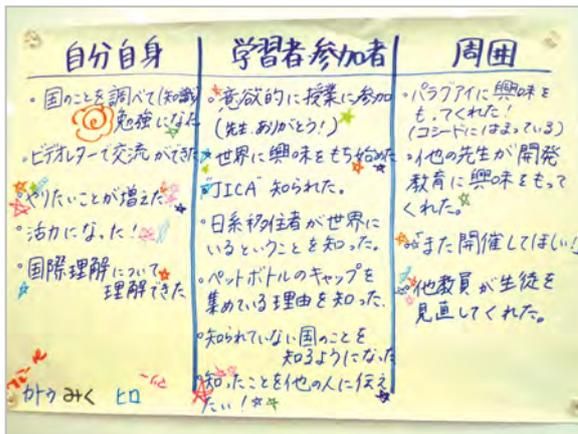 自分自身
・国のことを調べて(知識)
勉強になった
・ビデオレターで交流ができた
・やりたいことが増えた
・活力になった!
・国際理解について
理解できた
カトウ みく ヒロ
学習者 参加者
・意欲的に授業に参加
(先生、ありがとう!)
・世界に興味をもち始めた
・"JICA" 知られた。
・日系移住者が世界に
いるということを知った。
・ペットボトルのキャップを
集めている理由を知った。
・知られていない国のことを
知るようになった
・知ったことを他の人に伝え
たい!
周囲
・パラグアイに興味を
もってくれた!
(コシードにはまっている)
・他の先生が開発
教育に興味をもって
くれた。
・「また開催してほしい!」
・他教員が生徒を
見直してくれた。